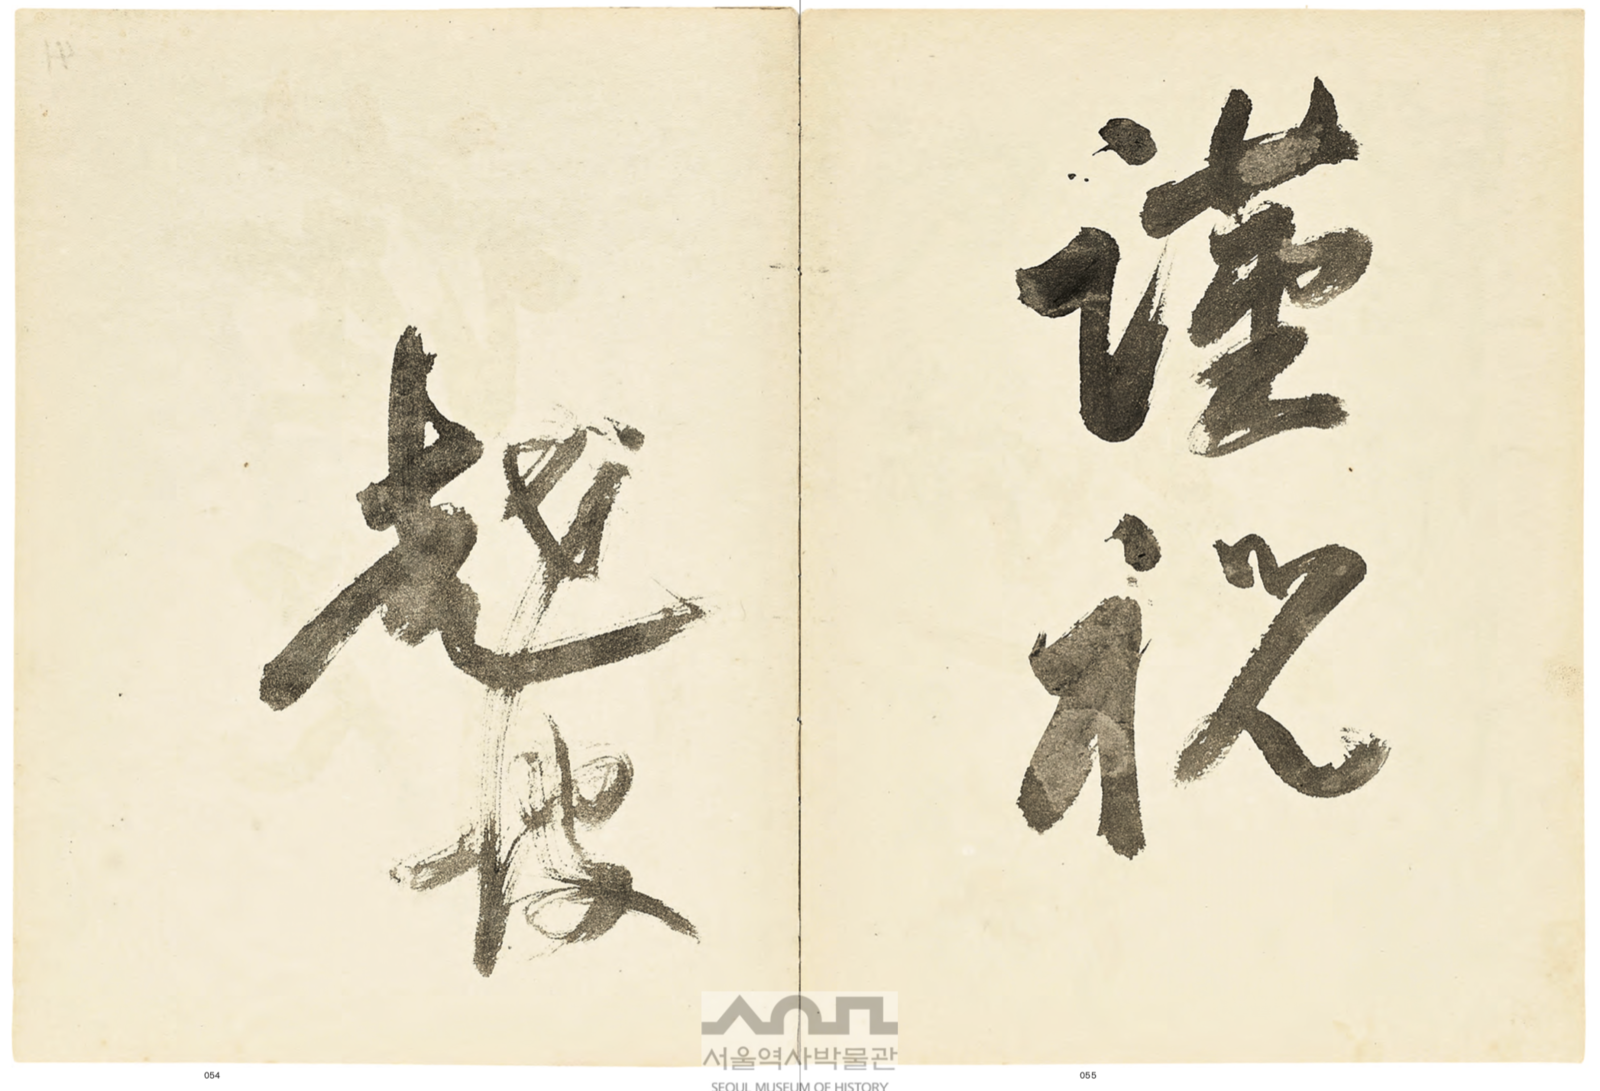 謹祝
越
서울역사박물관
SEOUL MUSEUM OF HISTORY
054
055